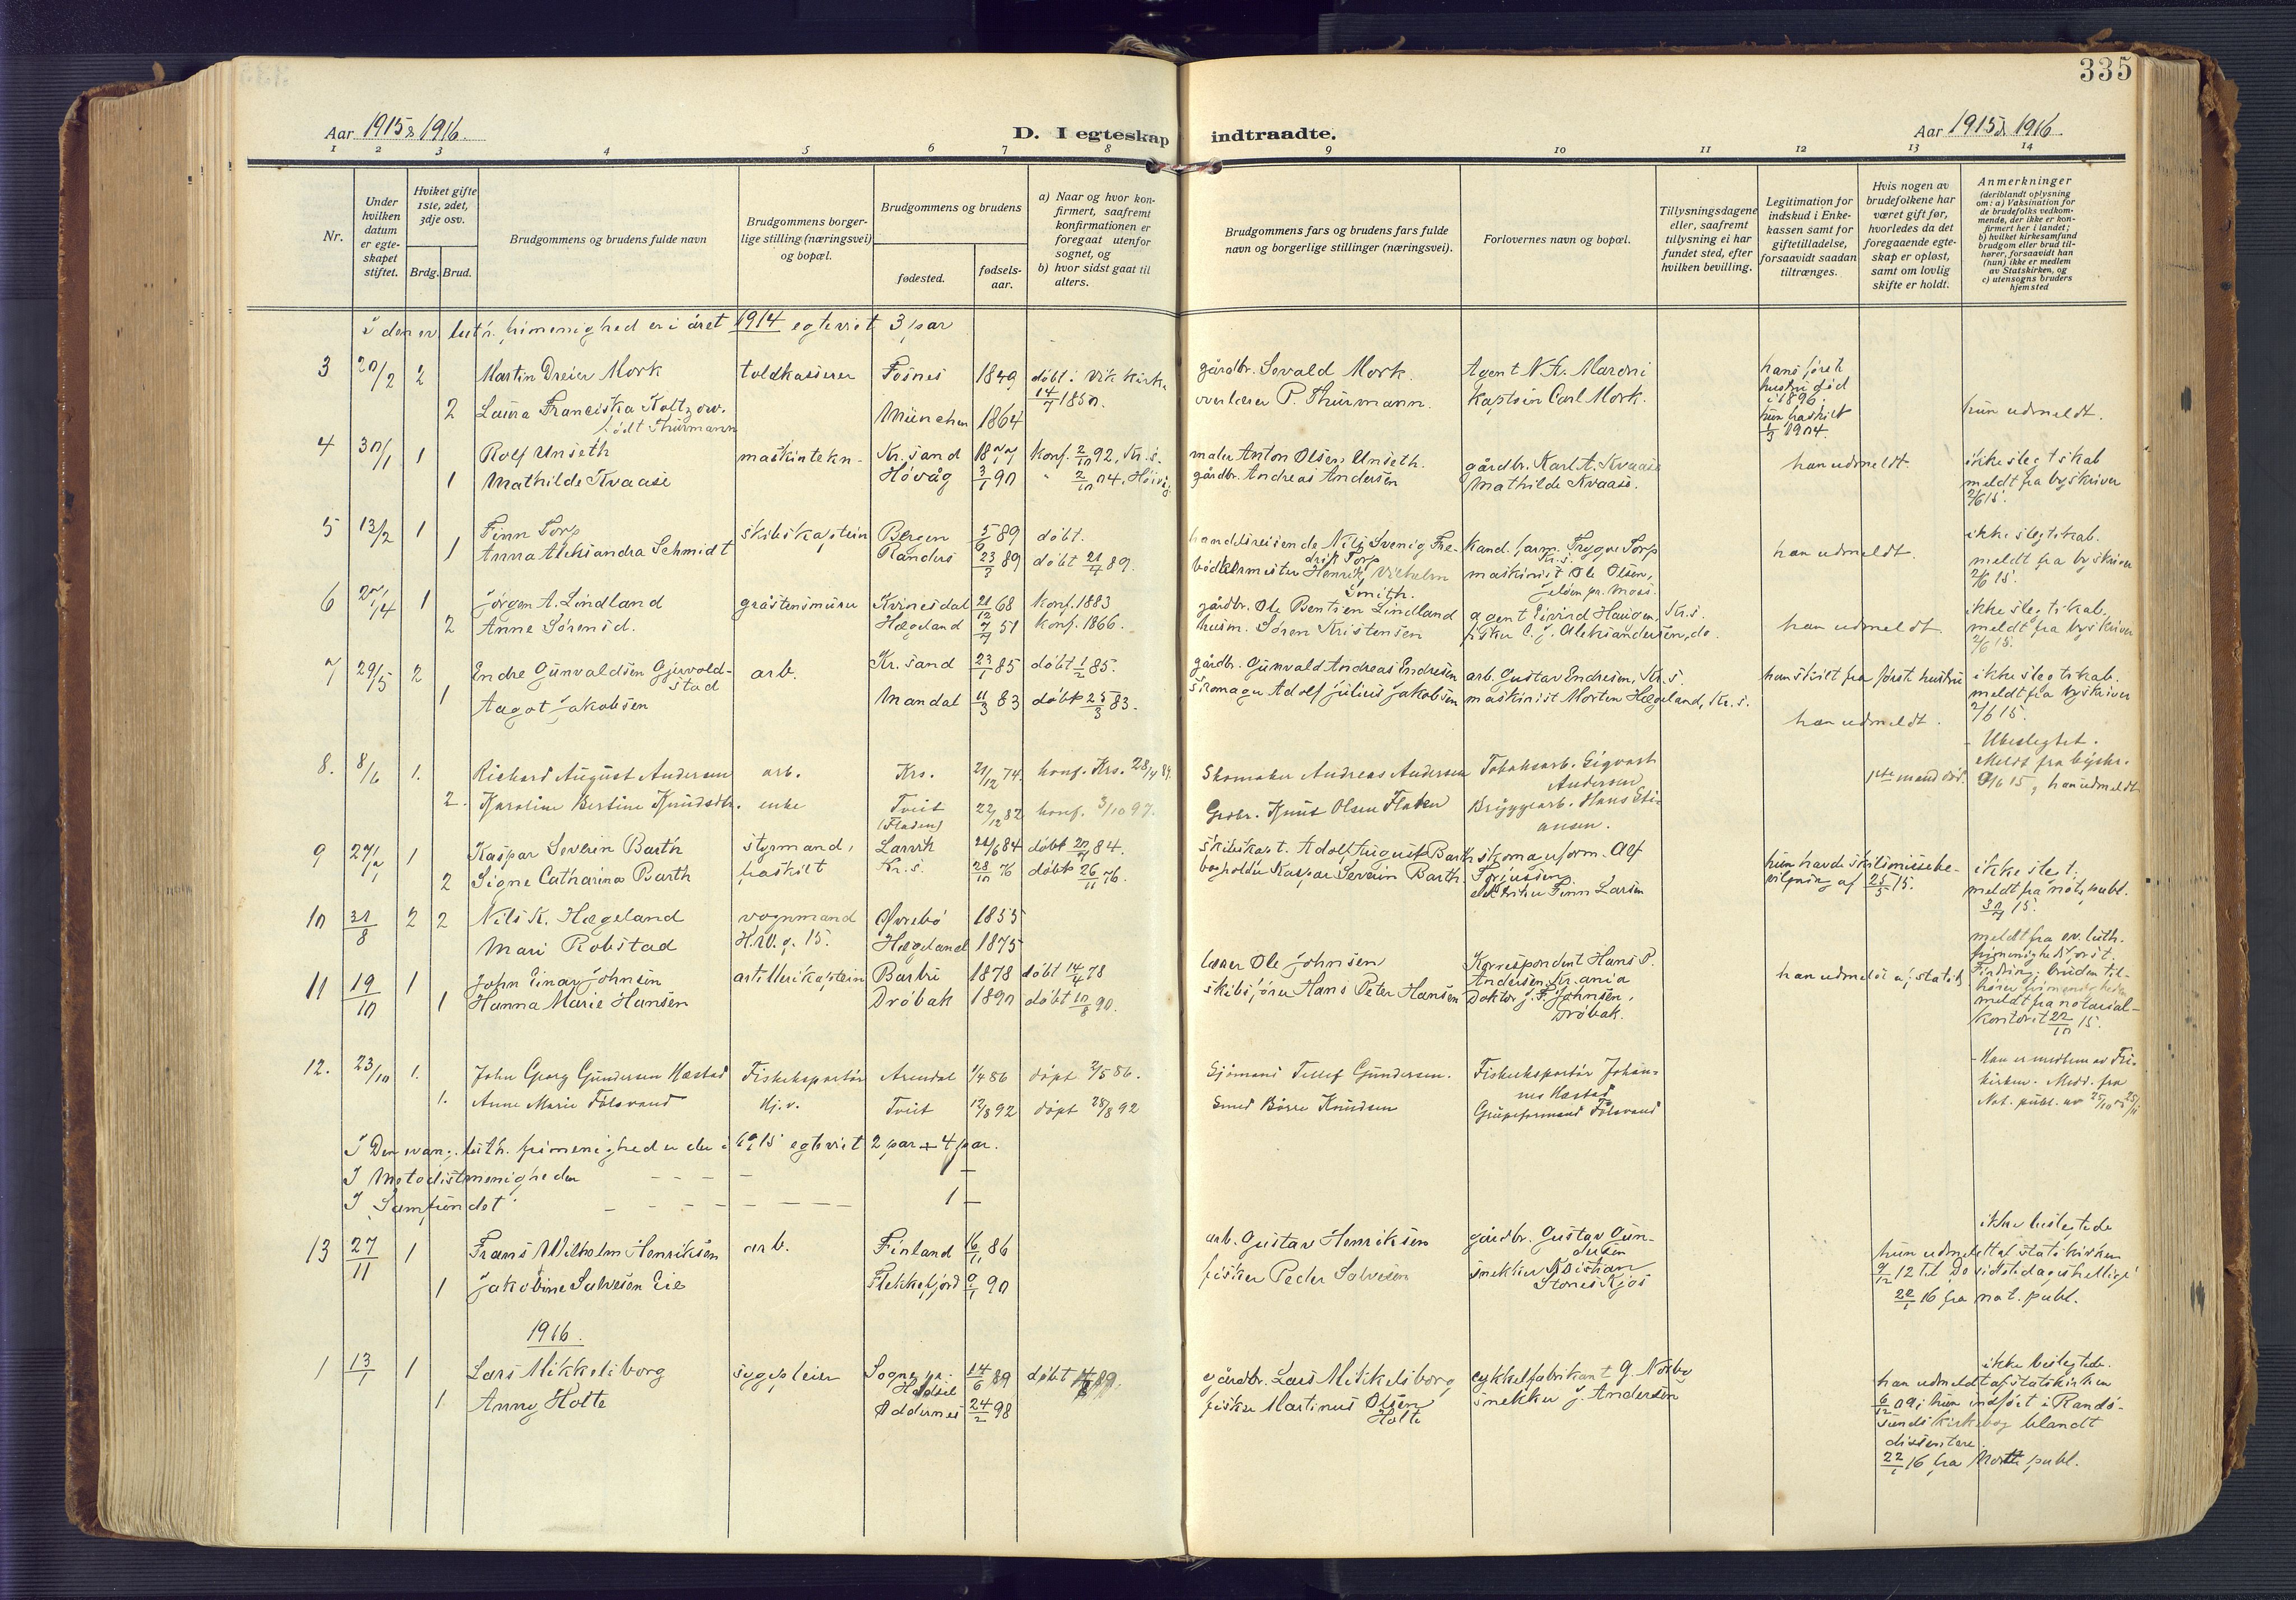 335
Aar 1915 & 1916.
D. I egteskap indtraadte.
Aar 1915 & 1916.
1 2 3 4 5 6 7 8 9 10 11 12 13 14
Nr.
Under hvilken datum er egteskapet stiftet.
Hviket gifte 1ste, 2det, 3dje osv.
Brdg. Brud.
Brudgommens og brudens fulde navn
Brudgommens borgerlige stilling (næringsvei) og bopæl.
Brudgommens og brudens
fødested.
fødselsaar.
a) Naar og hvor konfirmert, saafremt konfirmationen er foregaat utenfor sognet, og
b) hvor sidst gaat til alters.
Brudgommens fars og brudens fars fulde navn og borgerlige stillinger (næringsvei).
Forlovernes navn og bopæl.
Tillysningsdagene eller, saafremt tillysning ei har fundet sted, efter hvilken bevilling.
Legitimation for indskud i Enkekassen samt for giftetilladelse, forsaavidt saadan tiltrænges.
Hvis nogen av brudefolkene har været gift før, hvorledes da det foregaaende egteskap er opløst, samt om lovlig skifte er holdt.
Anmerkninger
(deriblandt oplysning om: a) Vaksination for de brudefolks vedkommende, der ikke er konfirmert her i landet;
b) hvilket kirkesamfund brudgom eller brud tilhører, forsaavidt han (hun) ikke er medlem av Statskirken, og
c) utensogns bruders hjemsted
I den ev. luth. frimenighed er i året 1914 egteviet 3 par
3 20/2 2 Martin Dreier Mork toldkasserer Fosnes 1849 døbt i Vik kirke 14/7 1850. gårdbr. Sevald Mork. Agent N. A. Mardni hans første hustru død i 1896.
2 Laura Franciska Holtzow. født Thurmann München 1864 overlærer P. Thurmann. Kaptein Carl Mork. hun fraskilt 1/3 1904. hun udmeldt.
4 30/1 1 Rolf Unseth maskintekn. Kr.sand 1877 konf. 2/10 92, Kr.s. maler Anton Olsen Unseth. gårdbr. Karl A. Kvaase han udmeldt. ikke slegtskab
1 Mathilde Kvaase Høvåg 3/1 90 " 2/10 04, Høivåg gårdbr. Andreas Andersen Mathilde Kvaase. meldt fra byskriver 2/6 15.
5 13/2 1 Finn Torp skibskaptein Bergen 5/6 89 døbt. handelsreisende Nils Svenig Fredrik Torp Kand. farm. Trygve Torp Kr.s. ikke slegtskab.
1 Anna Aleksandra Schmidt Randers 23/3 89 døbt 21/4 89. bødkermester Henrik Vilhelm Smith. maskinist Ole Olsen, Jeløen pr. Moss. han udmeldt. meldt fra byskriver 2/6 15.
6 27/4 1 Jørgen A. Lindland gråstensmurer Kvinesdal 21/12 68 konf. 1883 gårdbr. Ole Bentsen Lindland agent Eivind Haugen, Kr.s. ikke slegtskab.
2 Anne Sørensd. Hægeland 7/7 51 konf. 1866. husm. Søren Kristensen fisker C. J. Aleksandersen, do. han udmeldt. meldt fra byskriver 2/6 15.
7 29/5 2 Endre Gunvaldsen Gjervoldstad arb. Kr.sand 23/1 85 døbt 1/2 85. gårdbr. Gunvald Andreas Endresen arb. Gustav Endresen, Kr.s. han skilt fra første hustru ikke slegtskab.
1 Aagot Jakobsen Mandal 11/3 83 døbt 25/3 83. skomager Adolf Julius Jakobsen maskinist Morten Hægeland, Kr.s. han udmeldt. meldt fra byskriver 2/6 15.
8. 8/6 1. Richard August Andersen arb. Krs. 21/12 74. konf. Krs. 28/4 89. Skomaker Andreas Andersen Tobaksarb. Sigvart Andersen - Ubeslegtet.
2. Karoline Bertine Knudsdtr. enke Tveit (Fladen) 22/12 82 konf. 3/10 97. Grdbr. Knut Olsen Flaten Bryggearb. Hans Stiansen. 1ste mand død. Meldt fra byskr. 9/6 15, han udmeldt
9 27/7 1 Kaspar Severin Barth styrmand, Larvik 26/6 84 døbt 20/7 84. skibskapt. Adolf August Barth skomagerform. Alf Terjussen hun havde skilsmissebevilgning af 25/5 15. ikke slegt.
2 Signe Catharina Barth fraskilt Kr.s. 28/10 76 døbt 26/11 76. bogholder Kaspar Severin Barth elektriker Finn Larsen meldt fra not. publ. 30/7 15.
10 31/8 2 2 Nils K. Hægeland vognmand Øvrebø 1855
Mari Robstad H.W.g. 15. Hægeland 1875 meldt fra ev. luth. frimenighedsforst.
11 19/10 1 John Einar Johnsen artillerikaptein Barbu 1878 døbt 14/4 78 lærer Ole Johnsen Korrespondent Hans P. Andersen, Kr.ania han udmeldt af statsk. bruden tilhører frimenigheden
1 Hanna Marie Hansen Drøbak 1890 døbt 10/8 90. skibsfører Hans Peter Hansen Doktor J. F. Johnsen, Drøbak. meldt fra notarialkontoret 22/10 15.
12. 23/10 1. John Georg Gundersen Mæstad Fiskeeksportør Arendal 1/4 86 døpt 2/5 86. Sjömand Tellef Gundersen. Fiskeeksportør Johannes Mæstad - Han er medlem av Frikirken. Medd. fra
1. Anne Marie Følsvand Hj.v. Tveit 12/8 92 døpt 28/8 92 Smed Börre Knudsen Grubeformand Følsvand Not. publ. av 25/10
I Den evang. luth. frimenighed er der i 1915 egteviet 2 par + 4 par.
I Metodistmenigheden - - - - 1 -
I Samfundet - - - - - - 1 -
13 27/11 1 Frans Wilhelm Henriksen arb. Finland 16/11 86 arb. Gustav Henriksen gårdbr. Gustav Gundersen ikke beslegtede
1 Jakobine Salvesen Eie Flekkefjord 9/1 90 fisker Peder Salvesen snekker Kristian Stoneskjos hun udmeldt af statskirken 9/12 12 til De sidste dages hellige 22/1 16 fra not. publ.
1916.
1 13/1 1 Lars Mikkelsborg sygepleier Sogne pr. Halse 14/6 89 døbt 89. gårdbr. Lars Mikkelsborg cykkelfabrikant G. Norbø ikke beslegtede.
1. Anny Holte Oddernes 24/2 98 fisker Martinus Olsen Holte snekker J. Andersen han udmeldt af statskirken 6/12 09; hun indført i Randøsunds kirkebog blandt dissentere.
22/1 16 fra Not. publ.